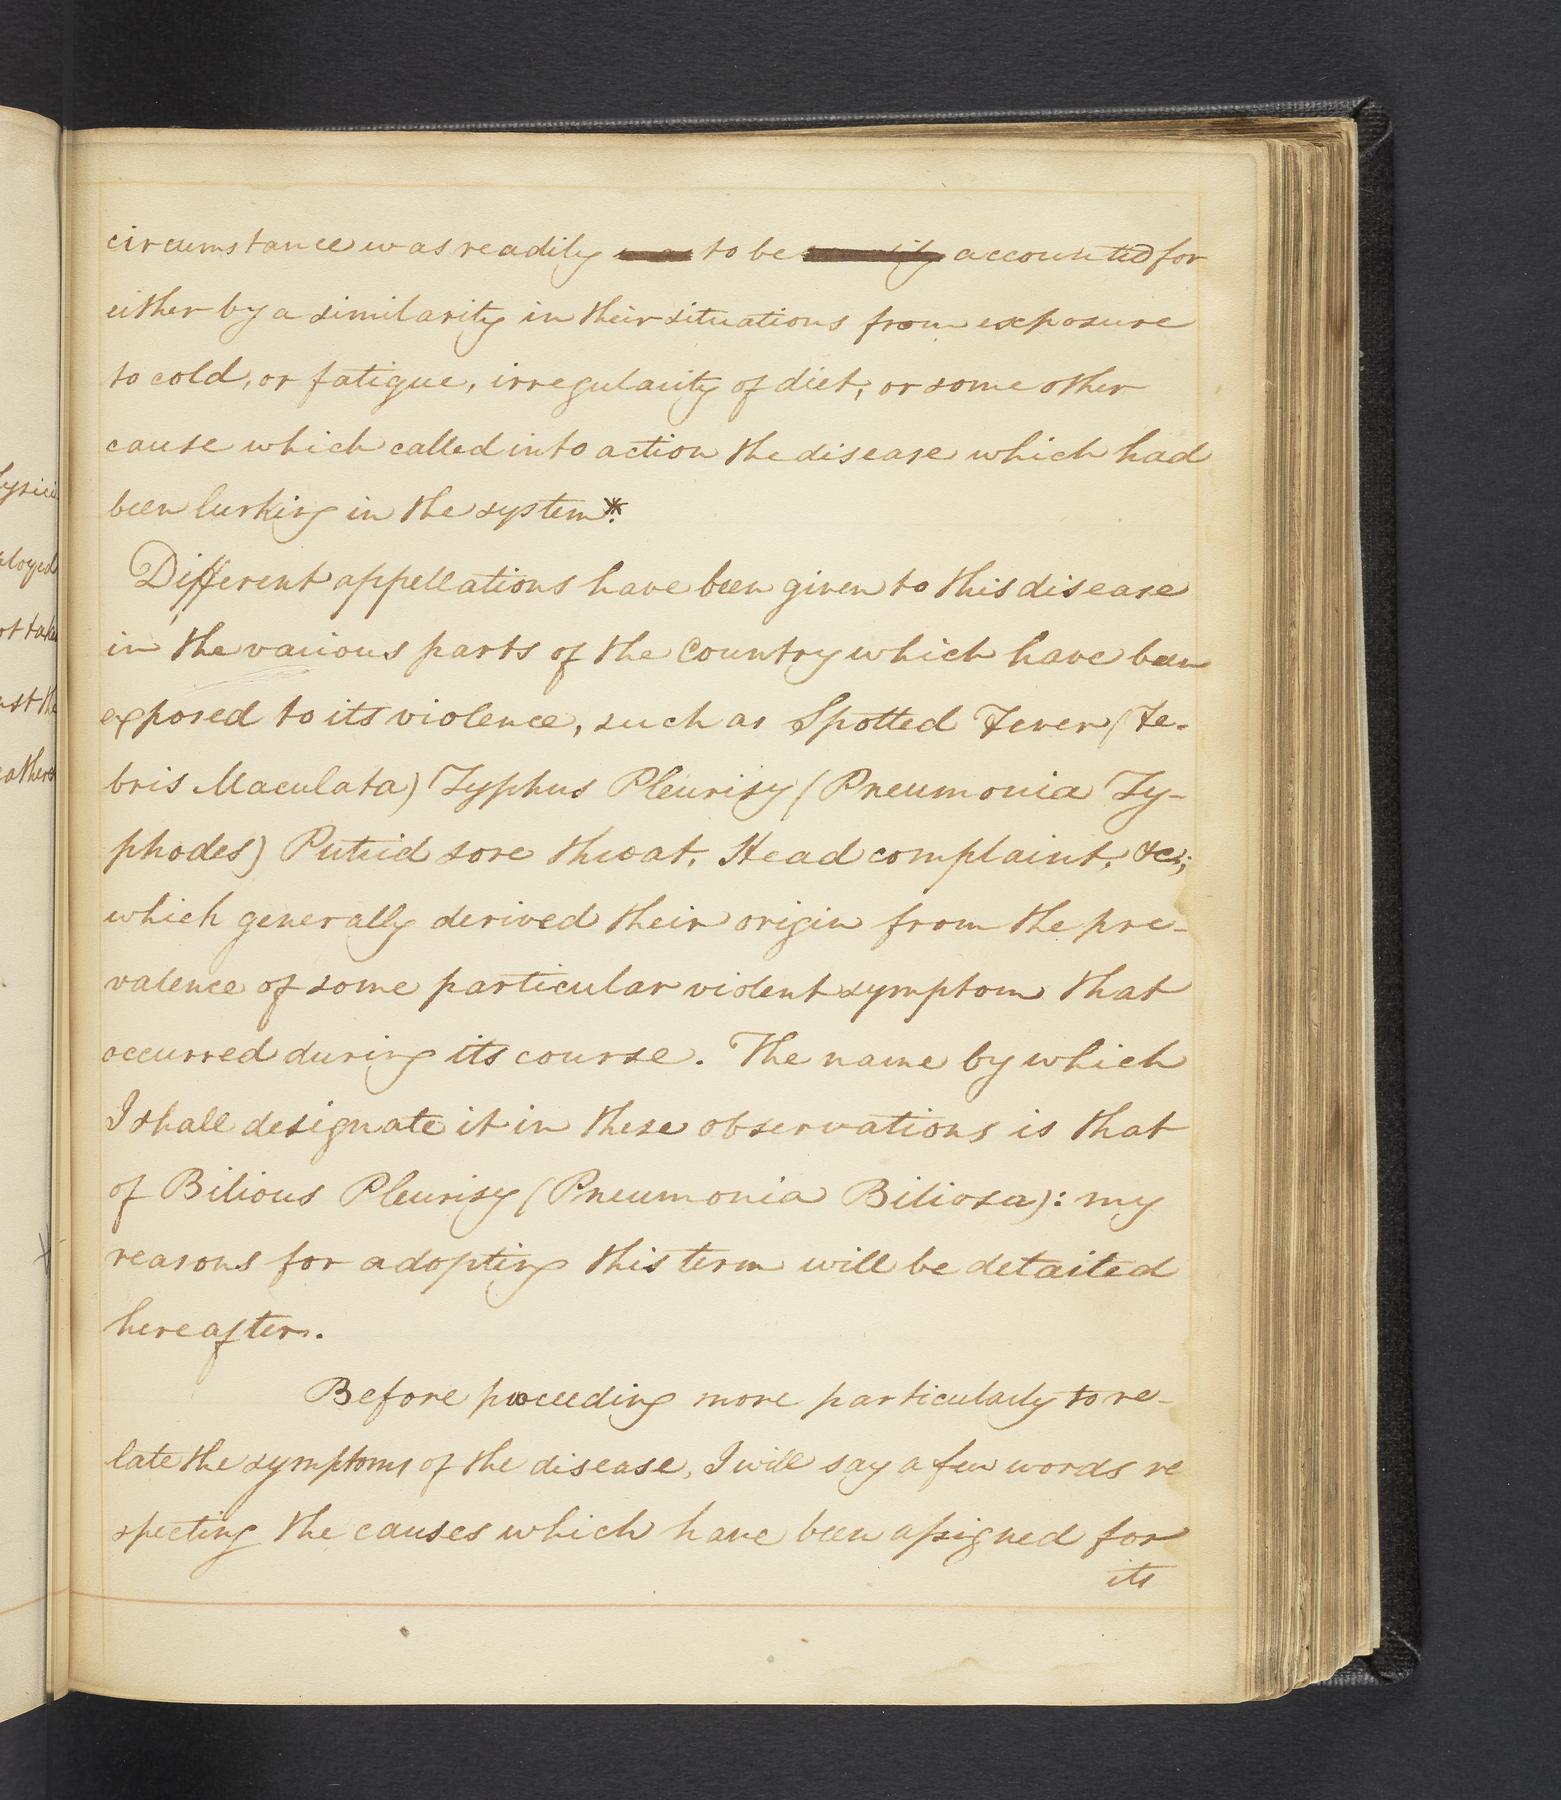 circumstance was readily to be accounted for
either by a similarity in their situations from exposure
to cold, or fatigue, irregularity of diet, or some other
cause which called into action the disease which had
been lurking in the system*.
Different appellations have been given to this disease
in the various parts of the Country which have been
exposed to its violence, such as Spotted Fever (Fe-
bris Maculata) Typhus Pleurisy (Pneumonia Ty-
phodes) Putrid sore throat, Head complaint, &c;
which generally derived their origin from the pre-
valence of some particular violent symptom that
occurred during its course. The name by which
I shall designate it in these observations is that
of Bilious Pleurisy (Pneumonia Biliosa): my
reasons for adopting this term will be detailed
hereafter.
Before proceeding more particularly to re-
late the symptoms of the disease, I will say a few words re
specting the causes which have been assigned for
its